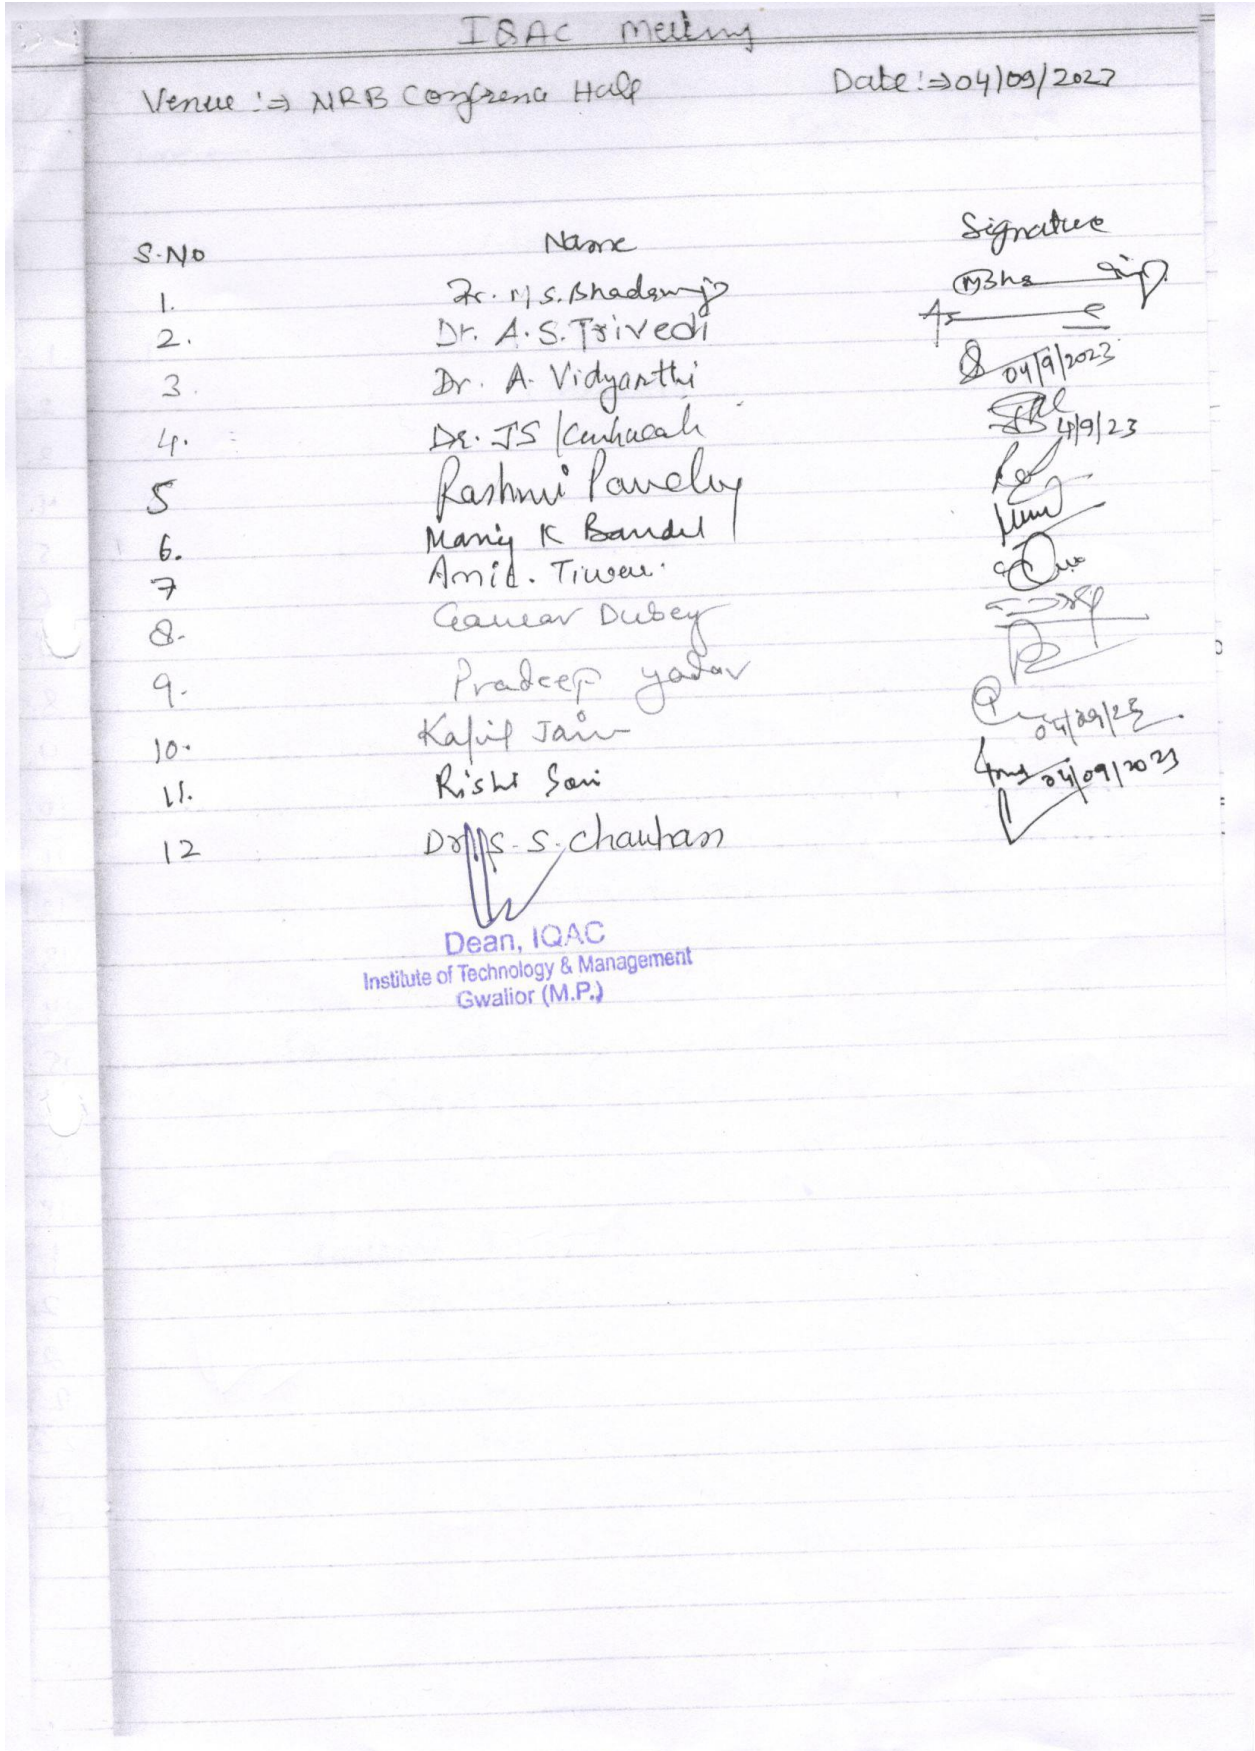 IQAC Meeting
Venue :⇒ NRB Conference Hall Date :⇒ 04/09/2023
S.No Name Signature
1. Dr. M S. Bhadauriya
2. Dr. A.S. Trivedi
3. Dr. A. Vidyarthi 04/9/2023
4. Dr. JS 4/9/23
5 Rashmi Pandey
6. Manoj K Bandil
7 Amit. Tiwari.
8. Gaurav Dubey
9. Pradeep yadav
10. Kapil Jain 04/09/23
11. Rishi Soni 04/09/2023
12 Dr S. S. Chauhan
Dean, IQAC
Institute of Technology & Management
Gwalior (M.P.)